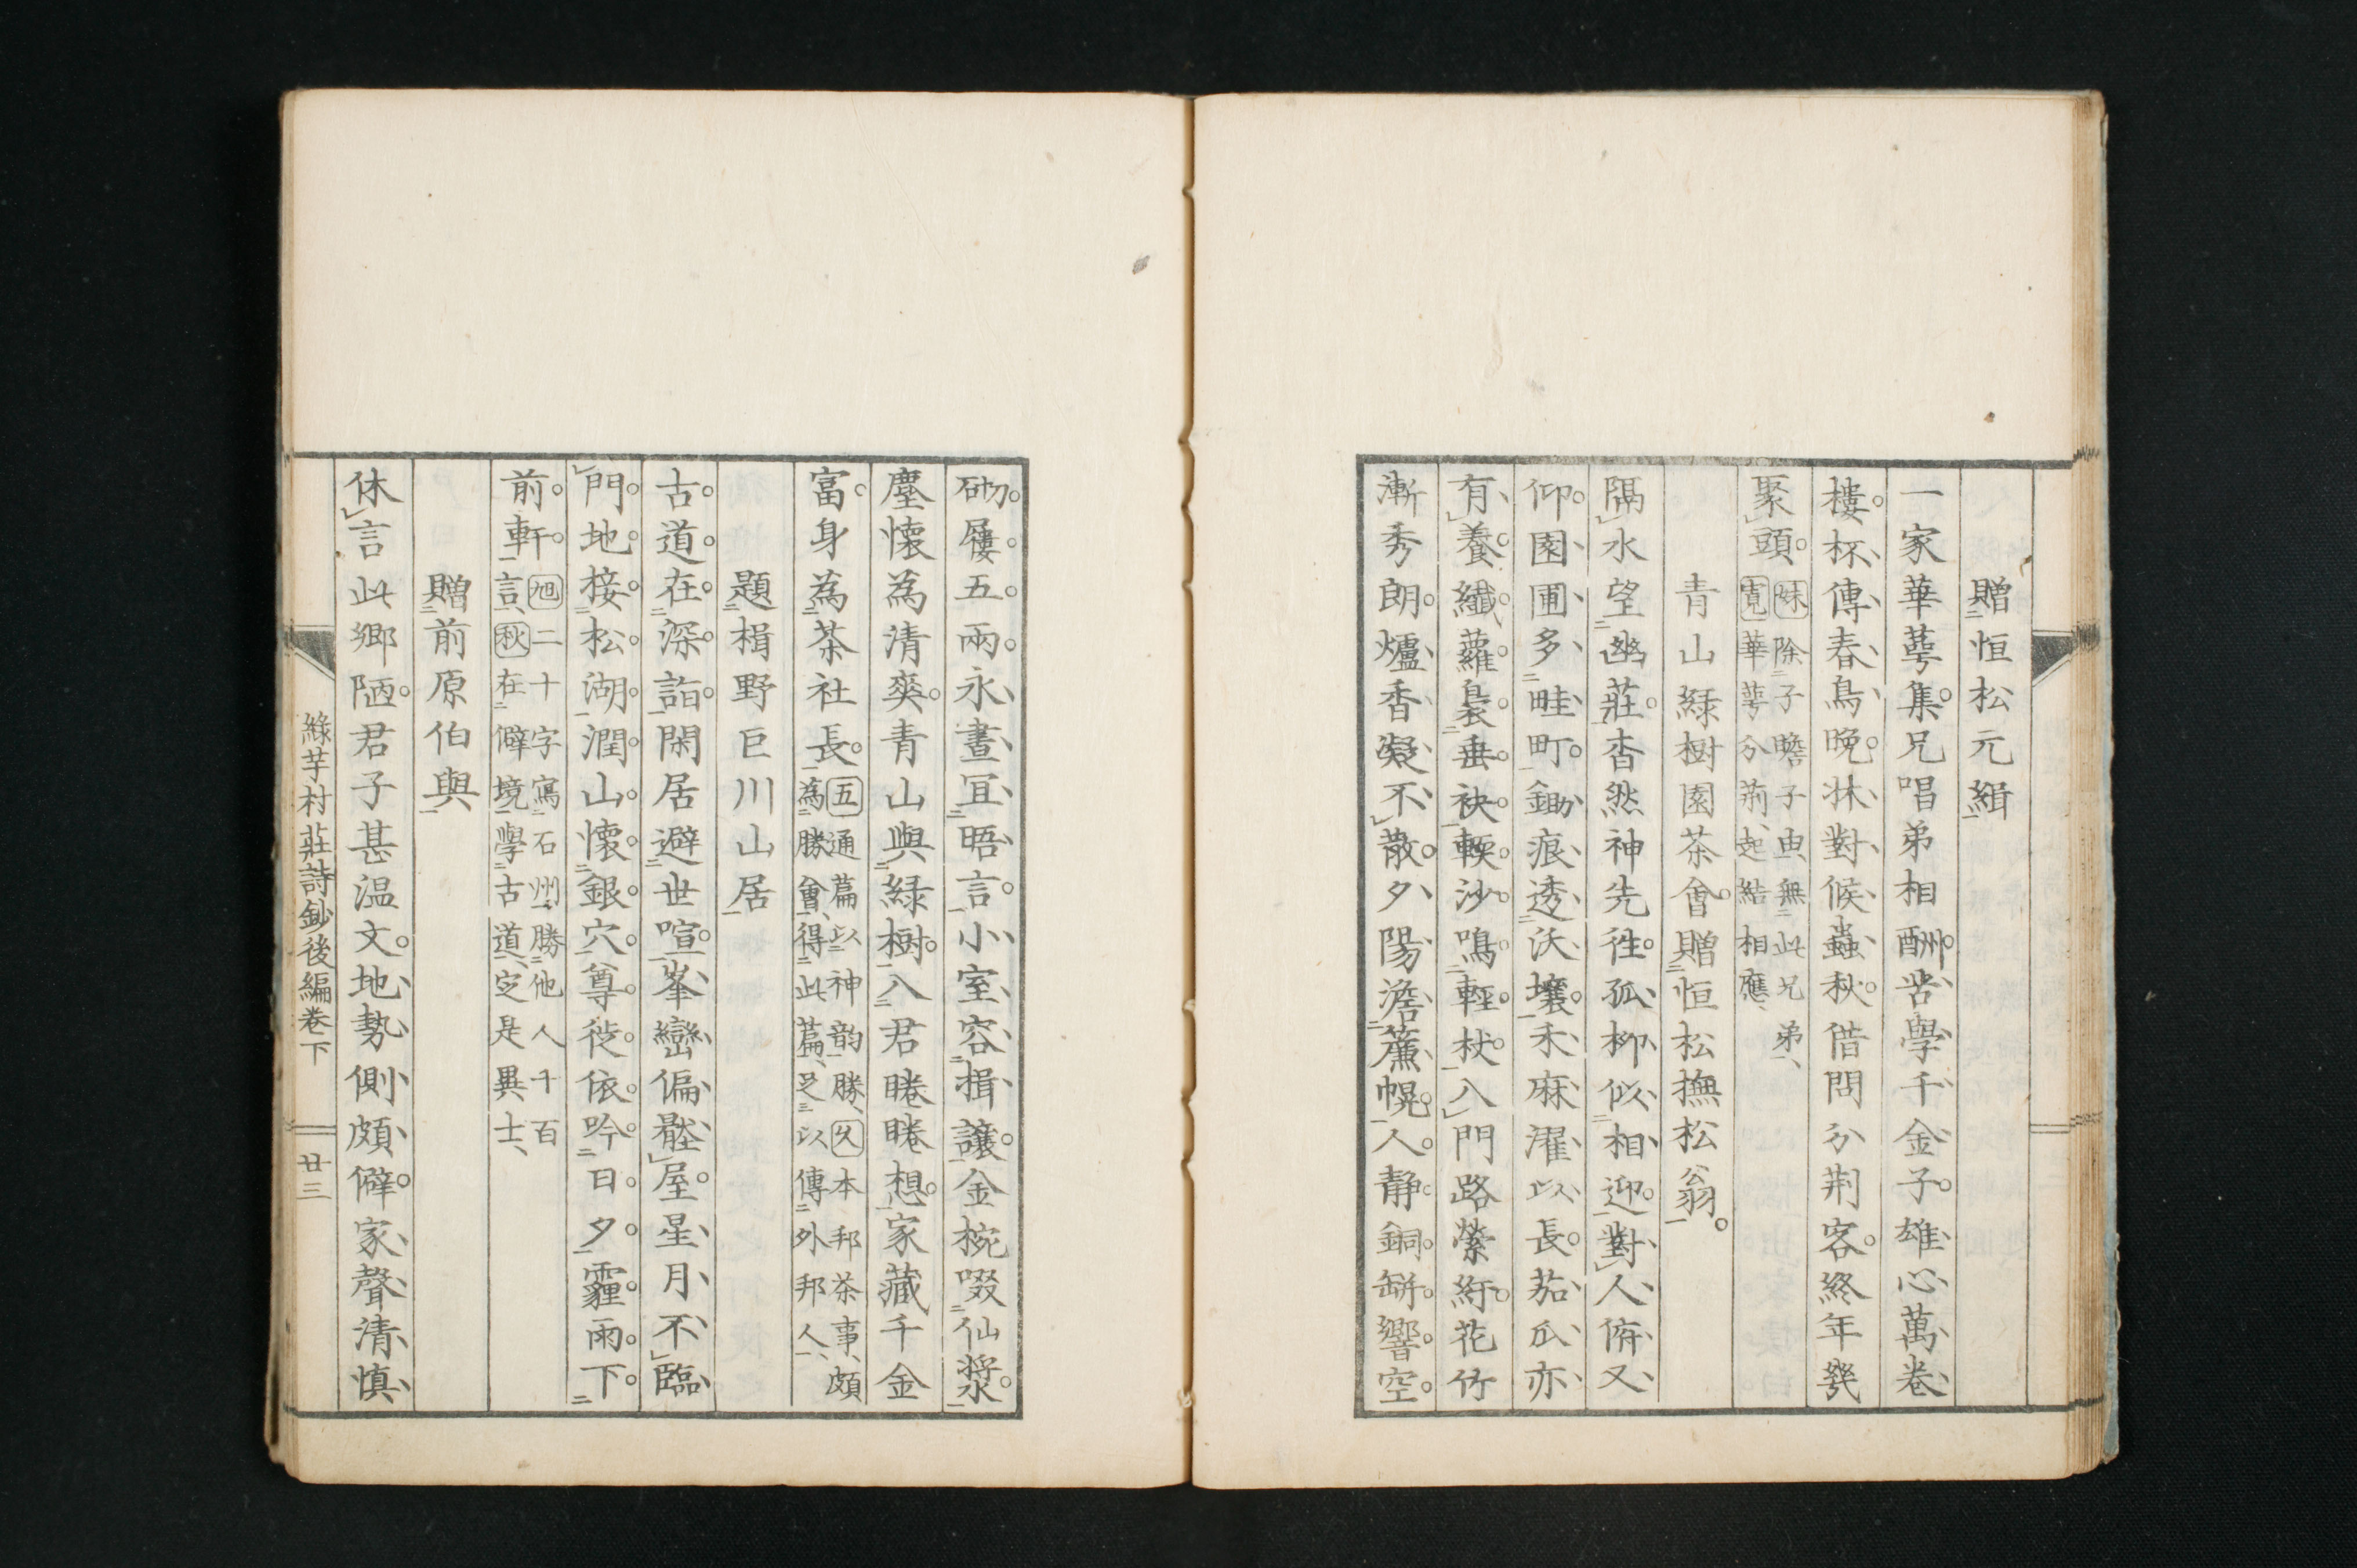 贈恒松元緝
一家華萼集兄唱弟相酬苦學千金子雄心萬卷
樓杯傳春鳥晩牀對候蟲秋借問分荆客終年幾
聚頭
除子瞻子由無此兄弟
寛華萼分荊起結相應
青山緑樹園茶會贈恒松撫松翁
隔水望幽莊杳然神先徃孤柳似相迎對人俯又
仰園圃多畦町鋤痕透沃壤禾麻濯以長茄瓜亦
有養纖蘿裊垂袂輭沙鳴輕杖入門路縈紆花竹
漸秀朗爐香凝不散夕陽澹簾幌人静銅缾響空
砌屨五兩永晝宜晤言小室容揖讓金椀啜仙漿
塵懷為清爽青山與緑樹入君睠睠想家藏千金
富身為茶社長
五通篇以神韵勝久本邦茶事頗
為勝會得此篇足以傳外邦人
題楫野巨川山居
古道在深詣閑居避世喧峯巒偏壓屋星月不臨
門地接松湖潤山懷銀穴尊徙依吟日夕霾雨下
前軒
旭二十字寫石州勝他人千百
言秋在僻境學古道定是異士
贈前原伯與
休言此鄉陋君子甚温文地勢側頗僻家聲清慎
綠芋村莊詩鈔後編卷下
廿三